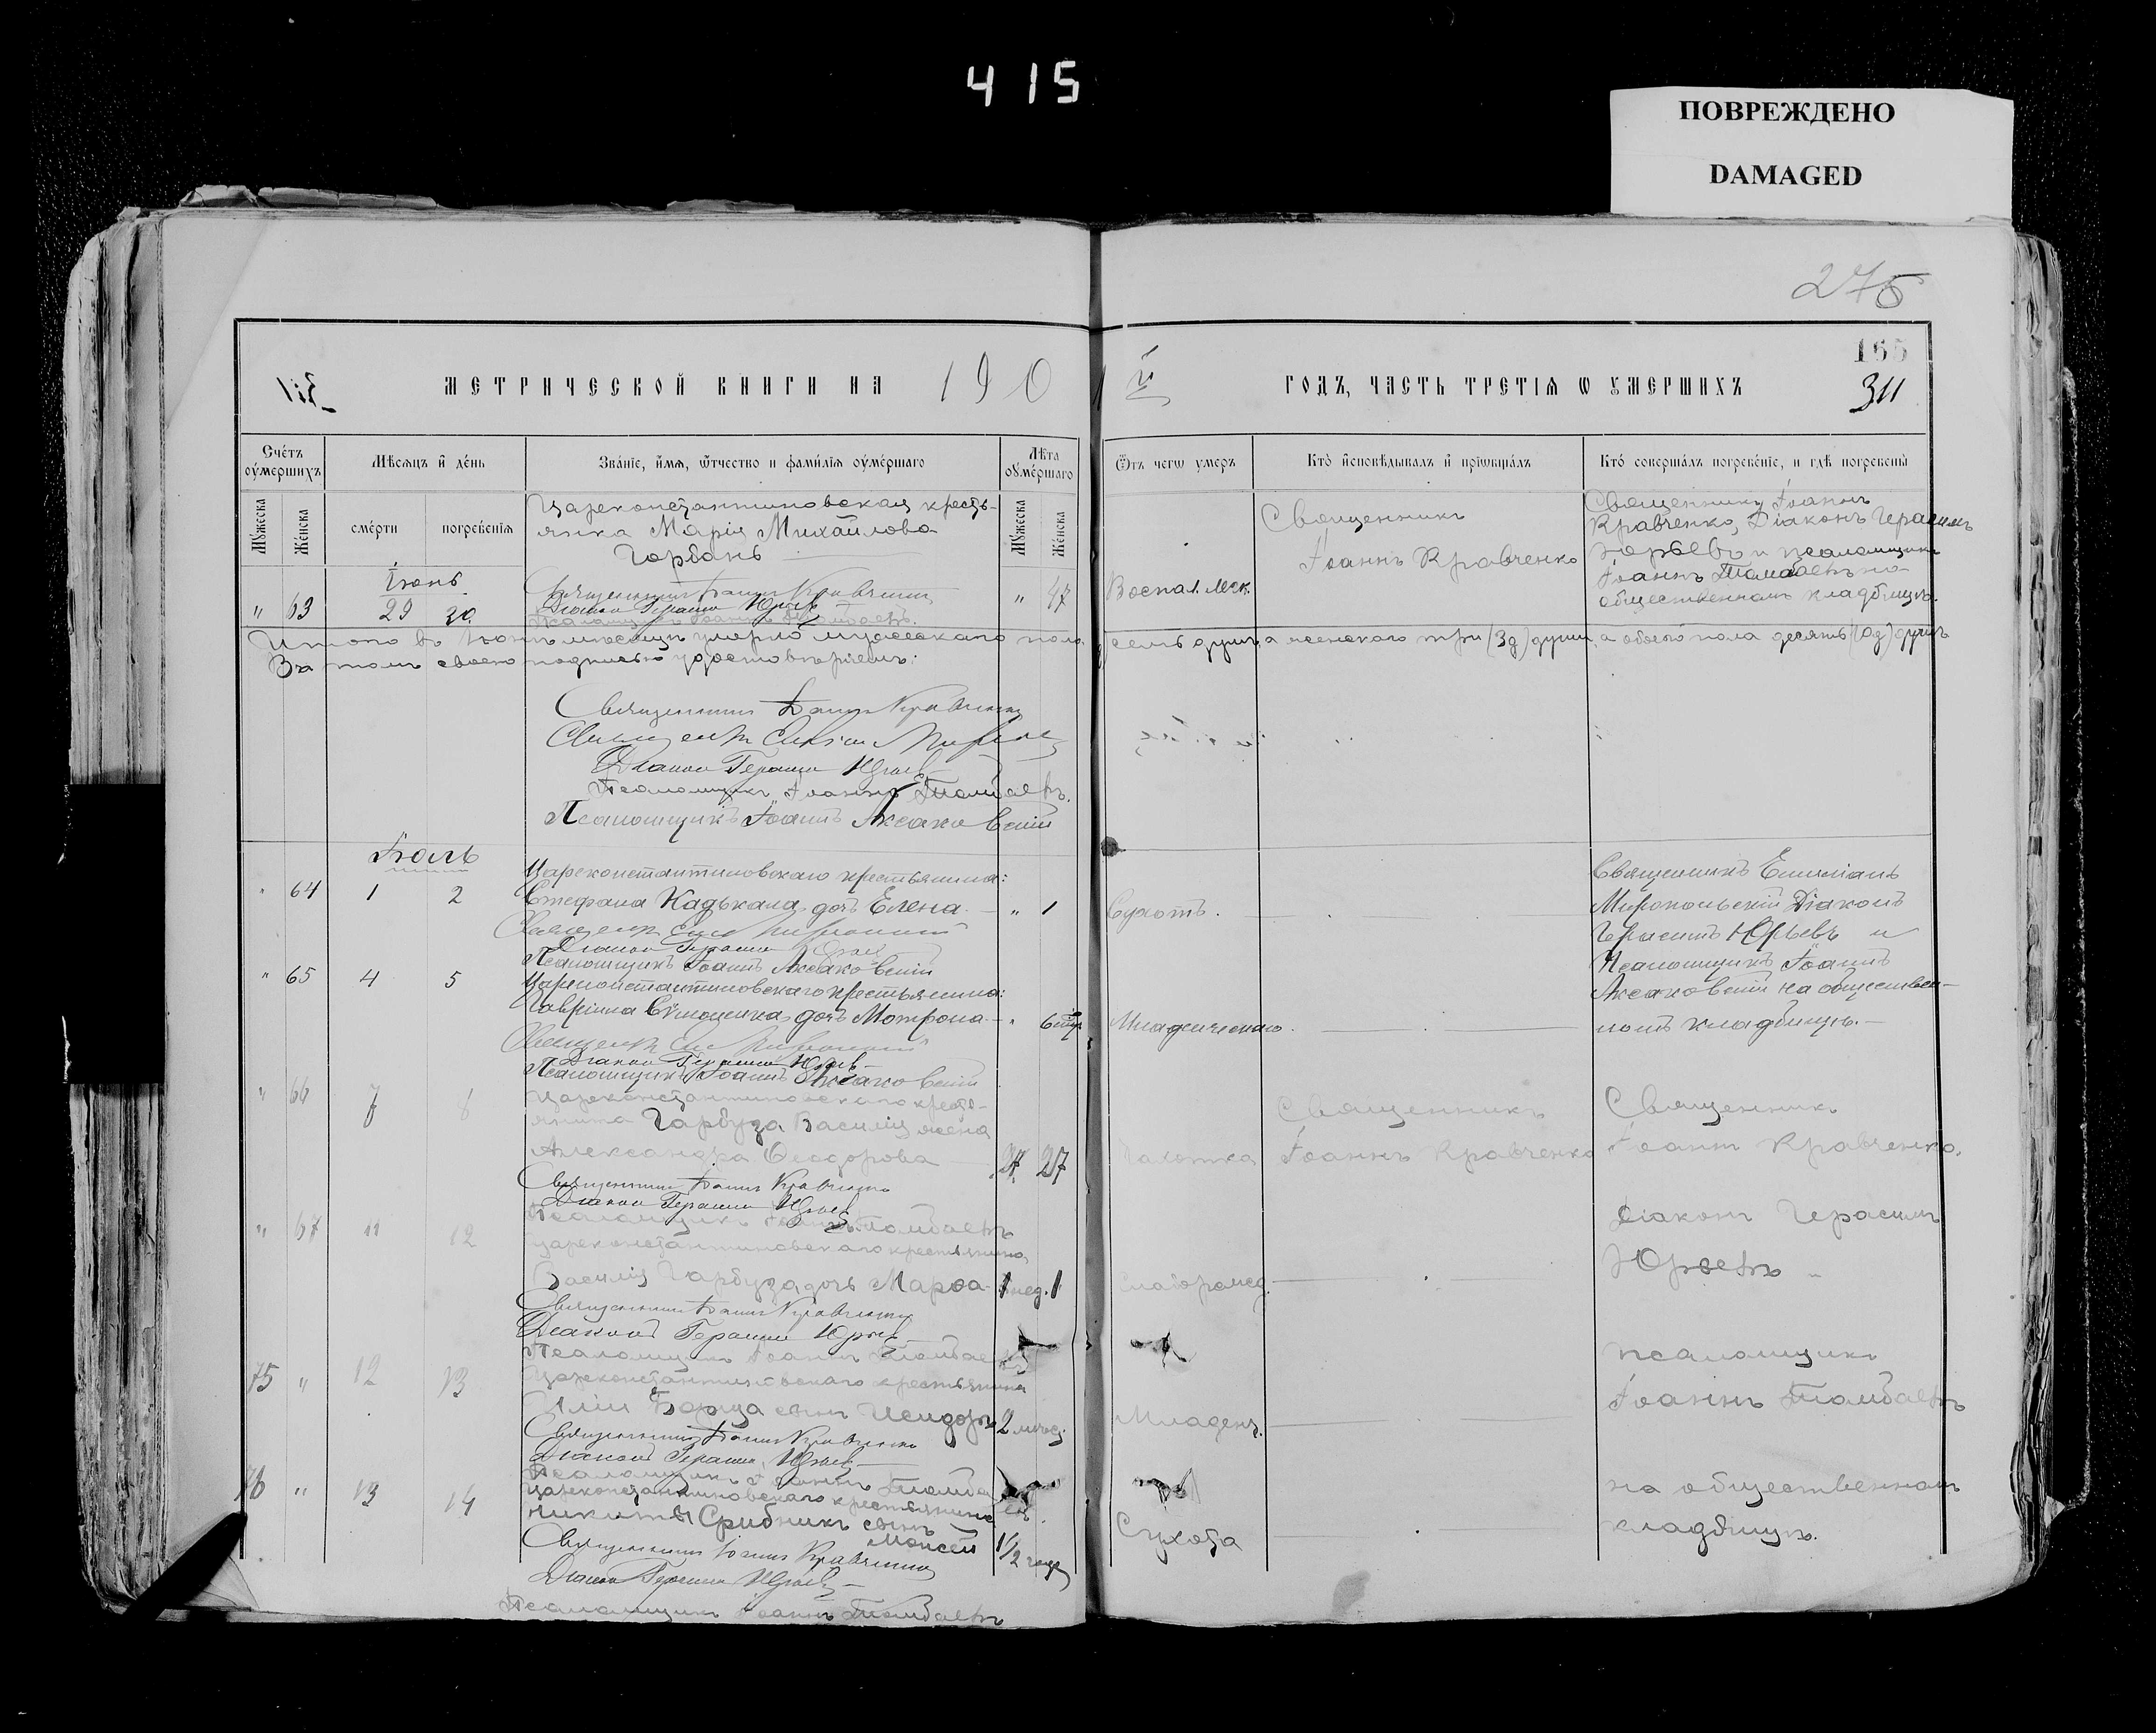 415
ПОВРЕЖДЕНО
DAMAGED
275
165
311
МЕТРИЧЕСКОЙ КНИГИ НА 1901й ГОДЪ, ЧАСТЬ ТРЕТІѦ Ѡ УМЕРШИХЪ
Счетъ оумершихъ
Мѣсѧцъ и день
Званіе, имѧ, ѿчество и фамилія оумершаго
Лѣта оумершаго
Ѿъ чегѡ умеръ
Кто исповѣдывалъ и пріѡбщалъ
Кто совершалъ погребеніе, и гдѣ погребены
Мужеска
Женска
смерти
погребенія
Мужеска
Женска
Іюнь
" 63 29 30
Цареконстантиновская кресть-
янка Марія Михайлова
Горбань
" 47
Воспал. легк.
Священникъ
Іоаннъ Кравченко
Священникъ Іоаннъ
Кравченко, Діаконъ Герасимъ
Юрьевъ и псаломщикъ
Іоаннъ на
общественномъ кладбищѣ.
Священникъ Іоаннъ Кравченко
Діаконъ Герасимъ Юрьевъ
Псаломщикъ Іоаннъ
Итого въ Іюнѣ мѣсяцѣ умерло мужескаго пола семь душъ, а женскаго три (3д) души, а обоего пола десять (10д) душъ
В томъ своею подписью удостовѣряемъ:
Священникъ Іоаннъ Кравченко
Священникъ
Діаконъ Герасимъ Юрьевъ
Псаломщикъ Іоаннъ
Псаломщикъ Іоаннъ Аксаковскій
Іюль
" 64 1 2
Цареконстантиновскаго крестьянина:
Стефана Кадькала дочь Елена
" 1
Сухотъ.
Священникъ Емиліанъ
Миропольскій Діаконъ
Герасимъ Юрьевъ и
Псаломщикъ Іоаннъ
Аксаковскій на обществен-
номъ кладбищѣ.
Священникъ
Діаконъ Герасимъ Юрьевъ
Псаломщикъ Іоаннъ Аксаковскій
" 65 4 5
Цареконстантиновскаго крестьянина:
Гавріила дочь Мотрона
" 6
Младенческаго.
Священникъ
Діаконъ Герасимъ Юрьевъ
Псаломщикъ Іоаннъ Аксаковскій
" 66 7 8
Цареконстантиновскаго кресть-
янина Гарбуза Василія жена
Александра Ѳеодорова
27
Чахотка
Священникъ
Іоаннъ Кравченко
Священникъ
Іоаннъ Кравченко.
Священникъ Іоаннъ Кравченко
Діаконъ Герасимъ Юрьевъ
Псаломщикъ Іоаннъ
" 67 11 12
Цареконстантиновскаго крестьянина
Василія Гарбуза дочь Марѳа
1 нед. 1
Діаконъ Герасимъ
Юрьевъ
Священникъ Іоаннъ Кравченко
Діаконъ Герасимъ Юрьевъ
Псаломщикъ Іоаннъ
75 " 12 13
Цареконстантиновскаго крестьянина
Иліи Борща сынъ Исидоръ
2 мѣсяц.
Младенч.
псаломщикъ
Іоаннъ
Священникъ Іоаннъ Кравченко
Діаконъ Герасимъ Юрьевъ
Псаломщикъ Іоаннъ
76 " 13 14
Цареконстантиновскаго крестьянина
Никиты Срибникъ сынъ
Моисей
1 1/2 года
Сухота
на общественномъ
кладбищѣ.
Священникъ Іоаннъ Кравченко
Діаконъ Герасимъ Юрьевъ
Псаломщикъ Іоаннъ